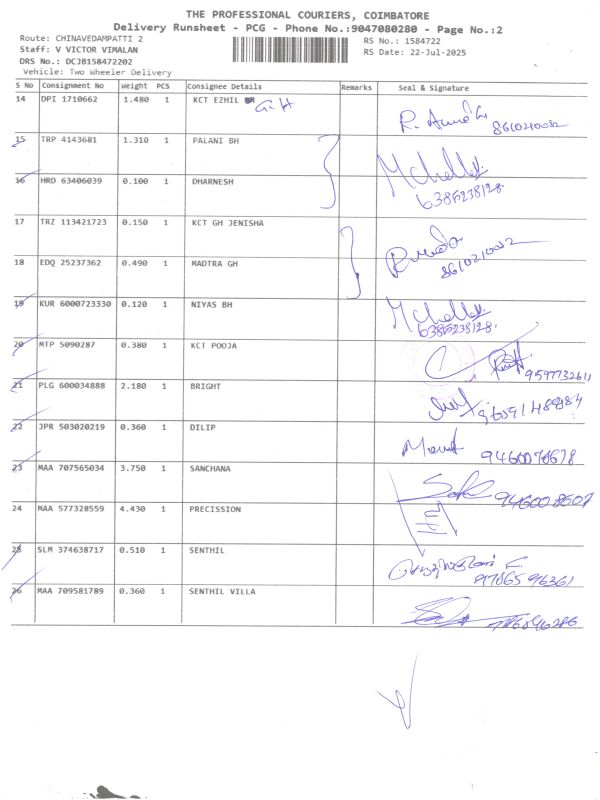 THE PROFESSIONAL COURIERS, COIMBATORE
Delivery Runsheet - PCG - Phone No.:9047080280 - Page No.:2
Route: CHINAVEDAMPATTI 2
RS No.: 1584722
Staff: V VICTOR VIMALAN
RS Date: 22-Jul-2025
DRS No.: DCJB158472202
Vehicle: Two Wheeler Delivery
S No Consignment No Weight PCS Consignee Details Remarks Seal & Signature
14 DPI 1710662 1.480 1 KCT EZHIL G.H
8610210082
15 TRP 4143681 1.310 1 PALANI BH
16 HRD 63406039 0.100 1 DHARNESH
6385238128
17 TRZ 113421723 0.150 1 KCT GH JENISHA
18 EDQ 25237362 0.490 1 MADTRA GH
19 KUR 6000723330 0.120 1 NIYAS BH
6385238128
20 MTP 5090287 0.380 1 KCT POOJA
21 PLG 600034888 2.180 1 BRIGHT
22 JPR 503020219 0.360 1 DILIP
23 MAA 707565034 3.750 1 SANCHANA
24 MAA 577328559 4.430 1 PRECISSION
25 SLM 374638717 0.510 1 SENTHIL
97865 96361
26 MAA 709581789 0.360 1 SENTHIL VILLA